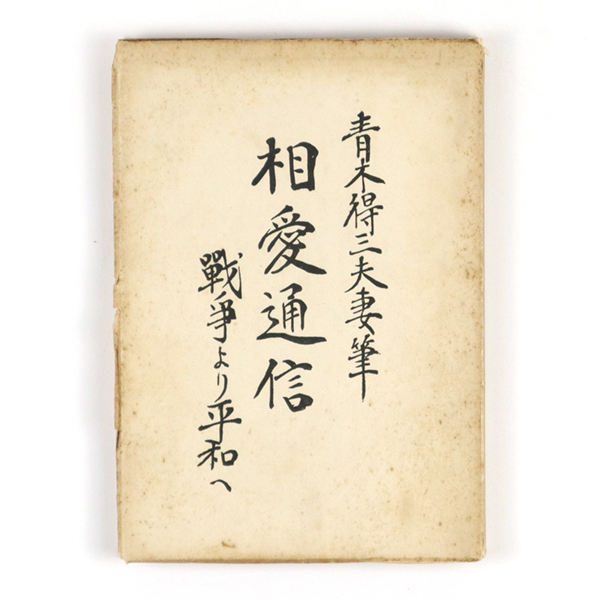 青木得三夫妻筆
相愛通信
戰爭より平和へ